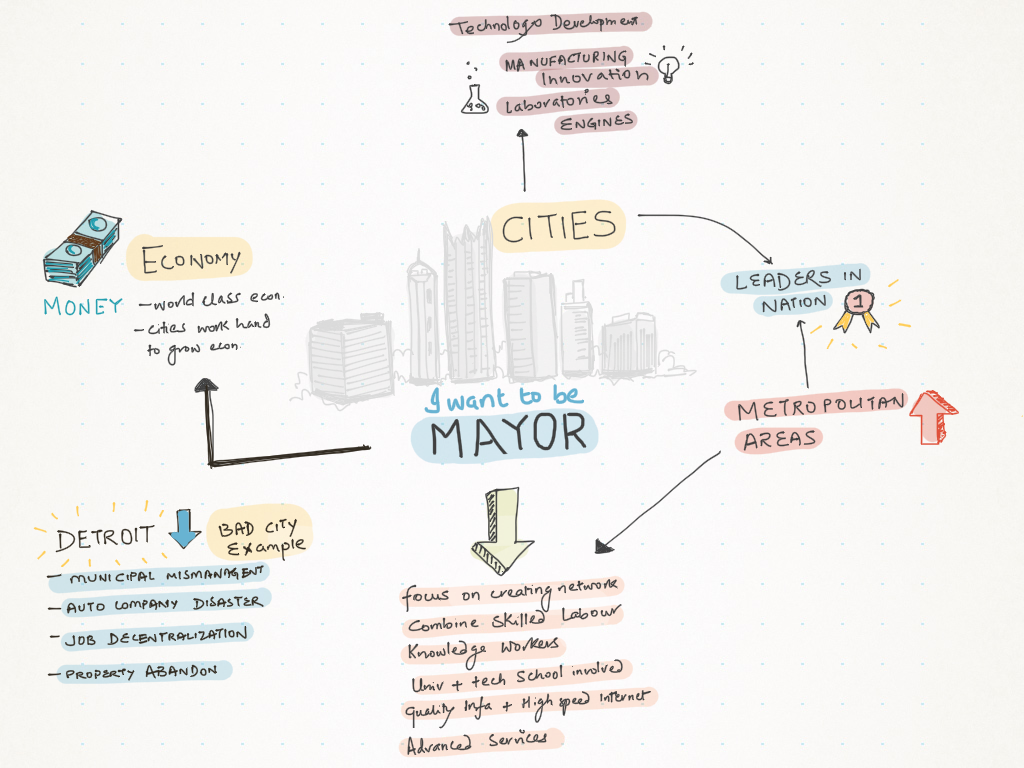 Technology Development
MANUFACTURING
Innovation
Laboratories
ENGINES
CITIES
LEADERS IN
NATION
1
METROPOLITAN
AREAS
ECONOMY
MONEY
– world class econ.
– cities work hand
to grow econ.
I want to be
MAYOR
DETROIT
BAD CITY
Example
– MUNICIPAL MISMANAGENT
– AUTO COMPANY DISASTER
– JOB DECENTRALIZATION
– PROPERTY ABANDON
focus on creating network
Combine Skilled Labour
Knowledge Workers
Univ + tech School involved
Quality Infa + High speed Internet
Advanced Services